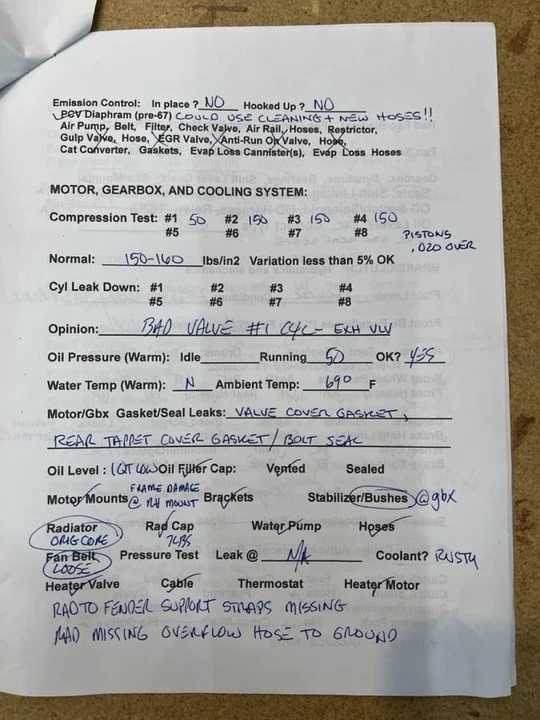 Emission Control: In place ? NO Hooked Up ? NO
PCV Diaphram (pre-67) COULD USE CLEANING + NEW HOSES!!
Air Pump, Belt, Filter, Check Valve, Air Rail, Hoses, Restrictor,
Gulp Valve, Hose, EGR Valve, Anti-Run On Valve, Hose,
Cat Converter, Gaskets, Evap Loss Cannister(s), Evap Loss Hoses
MOTOR, GEARBOX, AND COOLING SYSTEM:
Compression Test: #1 50 #2 150 #3 150 #4 150
#5 #6 #7 #8 PISTONS
.020 OVER
Normal: 150-160 lbs/in2 Variation less than 5% OK
Cyl Leak Down: #1 #2 #3 #4
#5 #6 #7 #8
Opinion: BAD VALVE #1 CYL - EXH VLV
Oil Pressure (Warm): Idle Running 50 OK? YES
Water Temp (Warm): N Ambient Temp: 690 F
Motor/Gbx Gasket/Seal Leaks: VALVE COVER GASKET,
REAR TAPPET COVER GASKET / BOLT SEAL
Oil Level : 1QT LOW Oil Filler Cap: Vented Sealed
Motor Mounts FRAME DAMAGE @ RH MOUNT Brackets Stabilizer/Bushes @gbx
Radiator Rad Cap Water Pump Hoses
ORIG CORE 7LBS
Fan Belt Pressure Test Leak @ N/A Coolant? RUSTY
LOOSE
Heater Valve Cable Thermostat Heater Motor
RAD TO FENDER SUPPORT STRAPS MISSING
RAD MISSING OVERFLOW HOSE TO GROUND